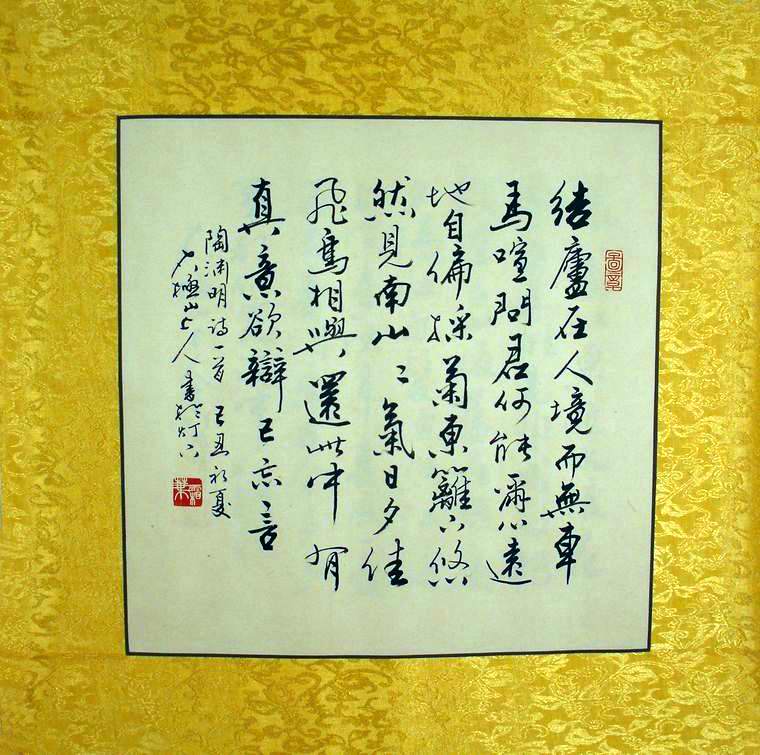 結廬在人境而無車
馬喧問君何能爾心遠
地自偏採菊東籬下悠
然見南山山氣日夕佳
飛鳥相與還此中有
真意欲辯已忘言
陶淵明詩一首 己丑初夏
太極山上人書於灯下